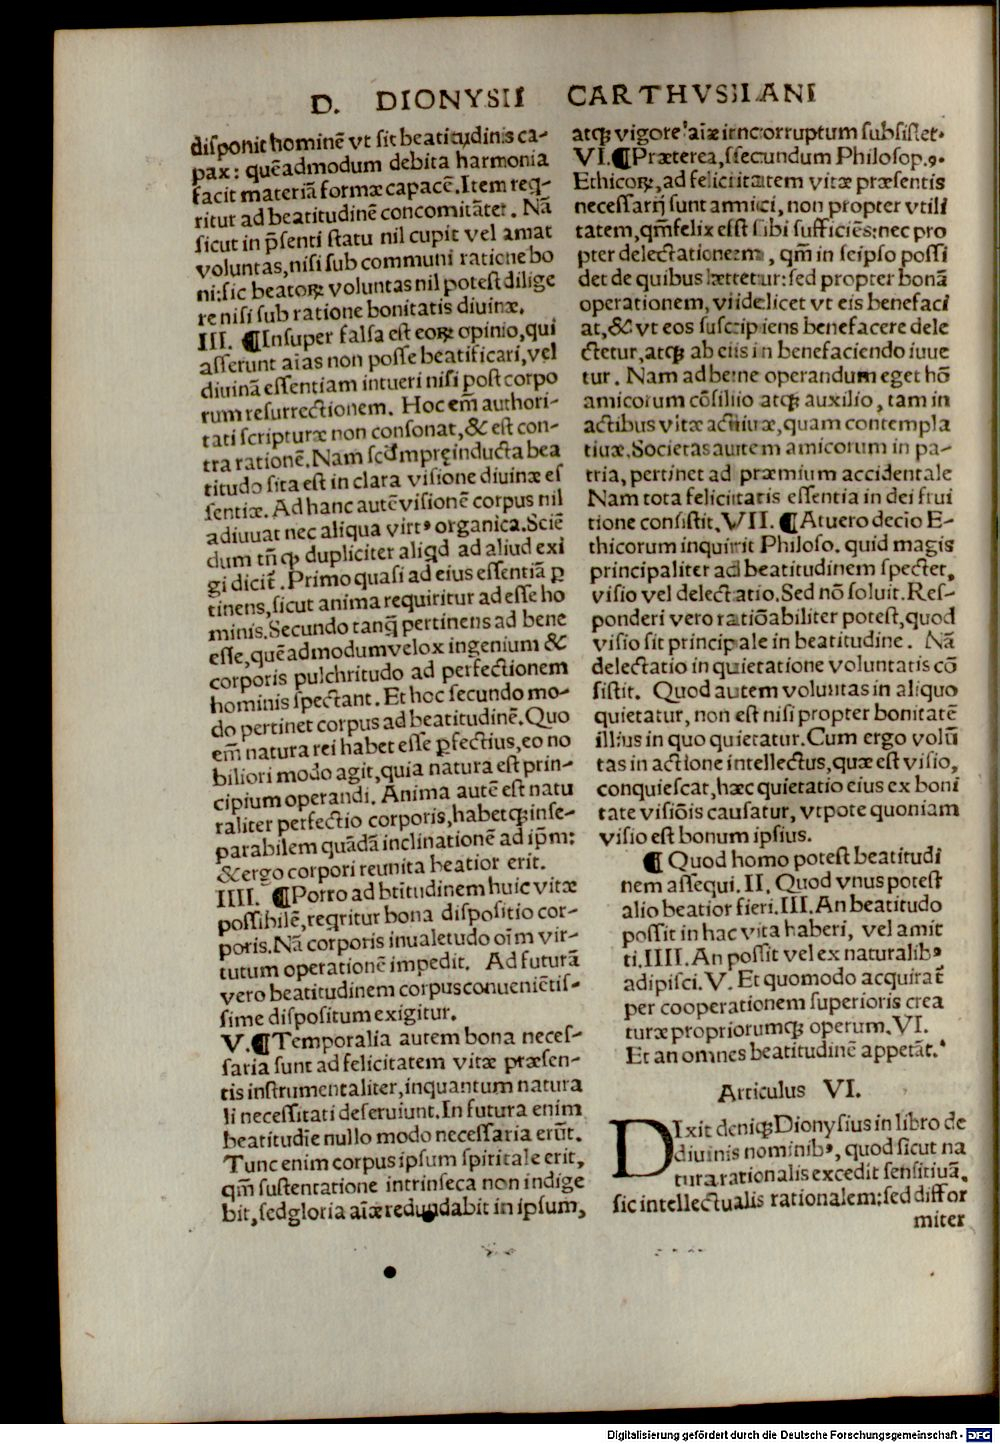 D. DIONYSII CARTHVSIANI
disponit hominē vt sit beatitudinis ca-
pax: quēadmodum debita harmonia
facit materiā formæ capacē. Item req̄-
ritur ad beatitudinē concomitāter. Nā
sicut in p̄senti statu nil cupit vel amat
voluntas, nisi sub communi ratione bo
ni: sic beatoꝝ voluntas nil potest dilige
re nisi sub ratione bonitatis diuinæ.
III. ¶Insuper falsa est eoꝝ opinio, qui
asserunt aīas non posse beatificari, vel
diuinā essentiam intueri nisi post corpo
rum resurrectionem. Hoc em̄ authori-
tati scripturæ non consonat, & est con-
tra rationē. Nam scd̄m pręinducta bea
titudo sita est in clara visione diuinæ es
sentiæ. Ad hanc autē visionē corpus nil
adiuuat nec aliqua virtꝰ organica. Sciē
dum tn̄ ꝙ dupliciter aliqd ad aliud exi
gi dicit̄. Primo quasi ad eius essentiā ꝑ
tinens, sicut anima requiritur ad esse ho
minis. Secundo tanq̄ pertinens ad bene
esse, quēadmodum velox ingenium &
corporis pulchritudo ad perfectionem
hominis spectant. Et hoc secundo mo-
do pertinet corpus ad beatitudinē. Quo
em̄ natura rei habet esse ꝑfectius, eo no
biliori modo agit, quia natura est prin-
cipium operandi. Anima autē est natu
raliter perfectio corporis, habetꝗ inse-
parabilem quādā inclinationē ad ip̄m:
& ergo corpori reunita beatior erit.
IIII. ¶Porro ad btītudinem huic vitæ
possibilē, reqritur bona dispositio cor-
poris. Nā corporis inualetudo oīm vir-
tutum operationē impedit. Ad futurā
vero beatitudinem corpus conueniētis-
sime dispositum exigitur.
V. ¶Temporalia autem bona neces-
saria sunt ad felicitatem vitæ præsen-
tis instrumentaliter, inquantum natura
li necessitati deseruiunt. In futura enim
beatitudīe nullo modo necessaria erūt.
Tunc enim corpus ipsum spiritale erit,
qm̄ sustentatione intrinseca non indige
bit, sed gloria aīæ redundabit in ipsum,
atqꝫ vigore aīæ incorruptum subsistet.
VI. ¶Præterea, secundum Philosop. 9.
Ethicoꝝ, ad felicitatem vitæ præsentis
necessarij sunt amici, non propter vtili
tatem, qm̄ felix est sibi sufficiēs: nec pro
pter delectationem, qm̄ in seipso possi
det de quibus lætetur: sed propter bonā
operationem, videlicet vt eis benefaci
at, & vt eos suscipiens benefacere dele
ctetur, atqꝫ ab eis in benefaciendo iuue
tur. Nam ad bene operandum eget hō
amicorum cōsilio atqꝫ auxilio, tam in
actibus vitæ actiuæ, quam contempla
tiuæ. Societas autem amicorum in pa-
tria, pertinet ad præmium accidentale
Nam tota felicitatis essentia in dei frui
tione consistit. VII. ¶At vero decīo E-
thicorum inquirit Philoso. quid magis
principaliter ad beatitudinem spectet,
visio vel delectatio. Sed nō soluit. Res-
ponderi vero ratiōabiliter potest, quod
visio sit principale in beatitudine. Nā
delectatio in quietatione voluntatis cō
sistit. Quod autem voluntas in aliquo
quietatur, non est nisi propter bonitatē
illius in quo quietatur. Cum ergo volū
tas in actione intellectus, quæ est visio,
conquiescat, hæc quietatio eius ex boni
tate visiōis causatur, vtpote quoniam
visio est bonum ipsius.
¶ Quod homo potest beatitudi
nem assequi. II. Quod vnus potest
alio beatior fieri. III. An beatitudo
possit in hac vita haberi, vel amit
ti. IIII. An possit vel ex naturalibꝰ
adipisci. V. Et quomodo acquirat̄
per cooperationem superioris crea
turæ propriorumqꝫ operum. VI.
Et an omnes beatitudinē appetāt.
Articulus VI.
DIxit deniqꝫ Dionysius in libro de
diuinis nominibꝰ, quod sicut na
tura rationalis excedit sensitiuā,
sic intellectualis rationalem: sed diffor
miter
Digitalisierung gefördert durch die Deutsche Forschungsgemeinschaft - DFG